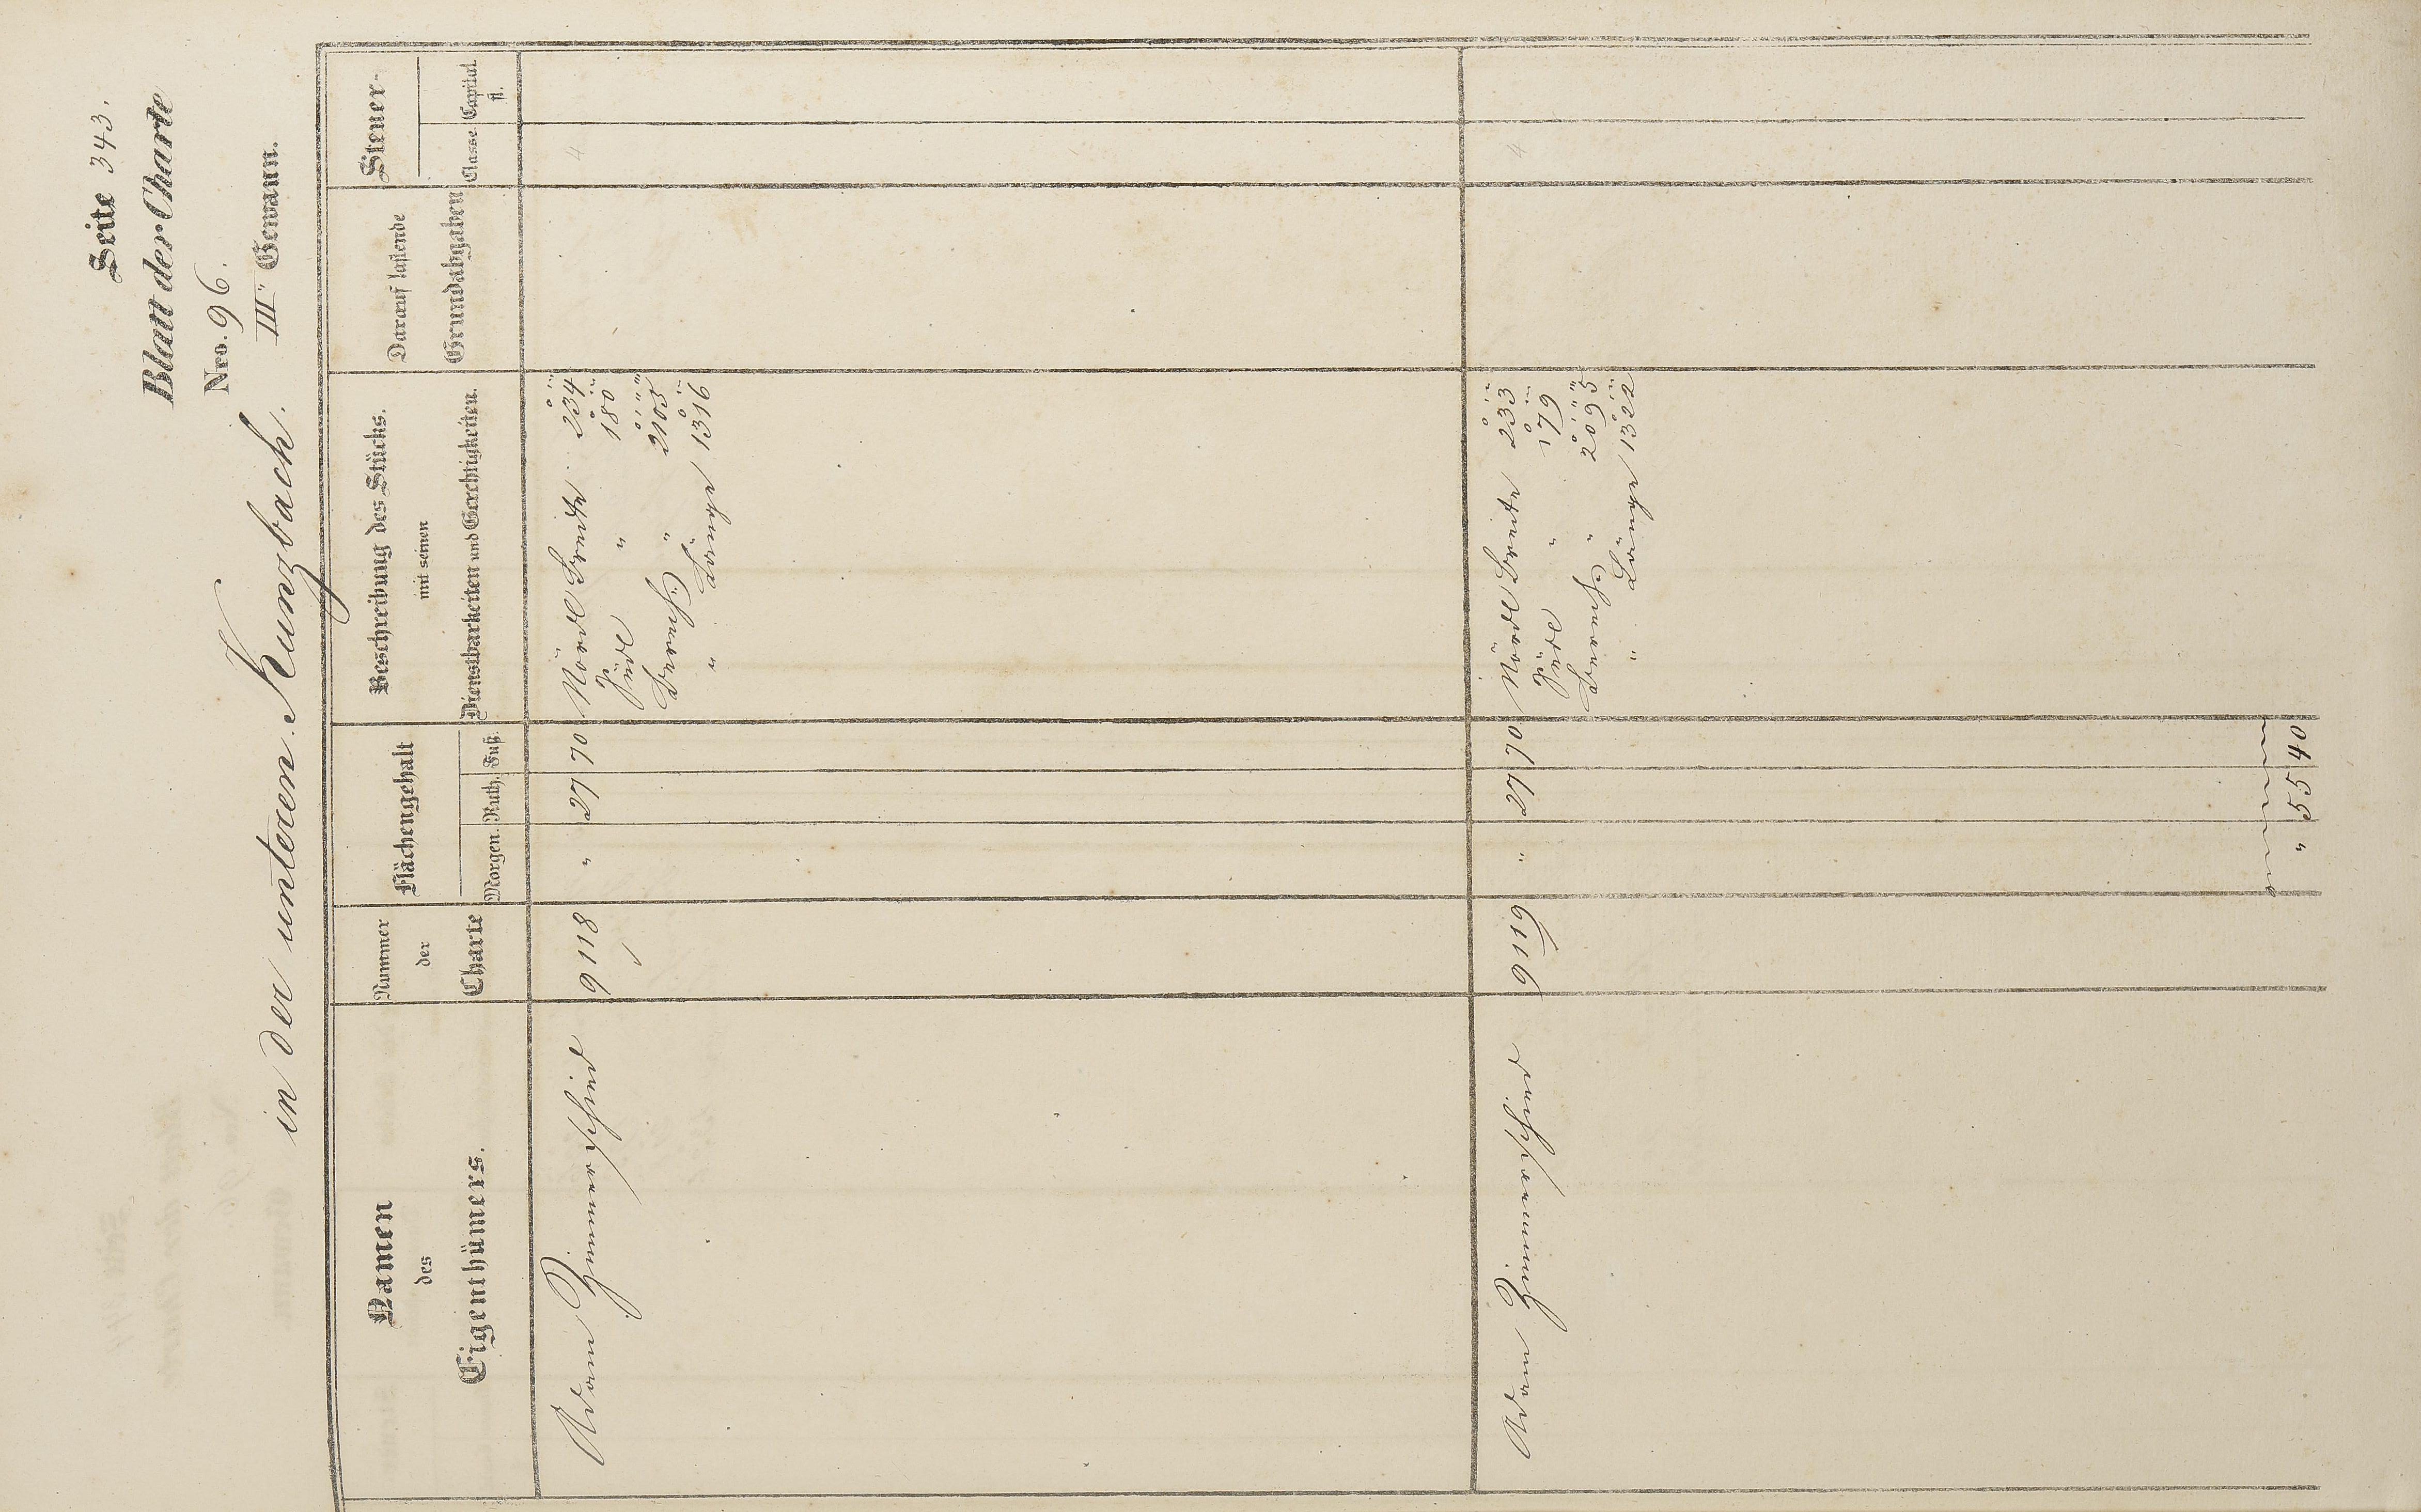 Seite 343.
Blatt der Charte
Nro. 96.
III.r Gewann.
in der unteren Kunzbach.
Namen
des
Eigenthümers.
Nummer
der
Charte
Flächengehalt
Morgen. Ruth. Fuß.
Beschreibung des Stücks.
mit seinen
Dienstbarkeiten und Gerechtigkeiten.
Darauf lastende
Grundabgaben
Steuer-
Classe Capital
fl.
Adam Zimmerschied 9118 " 27 70 Nördl Breite 234 4
Südl " 180
Senkrechte " 2105
" Länge 1316
Adam Zimmerschied 9119 " 27 70 Nördl Breite 233 4
Südl " 179
Senkrechte " 2095
" Länge 1322
" 55 40